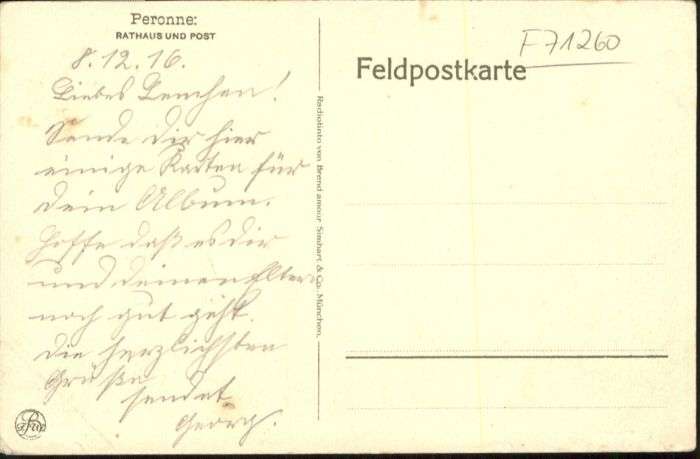 Peronne:
RATHAUS UND POST
8.12.16.
Liebes Lenchen!
Sende Dir hier
einige Karten für
Dein Album.
Hoffe daß es Dir
und Deinen Eltern
noch gut geht.
Die herzlichsten
Grüße
sendet
Georg.
Radiotinto von Brend'amour Simhart & Co. München.
Feldpostkarte
F71260